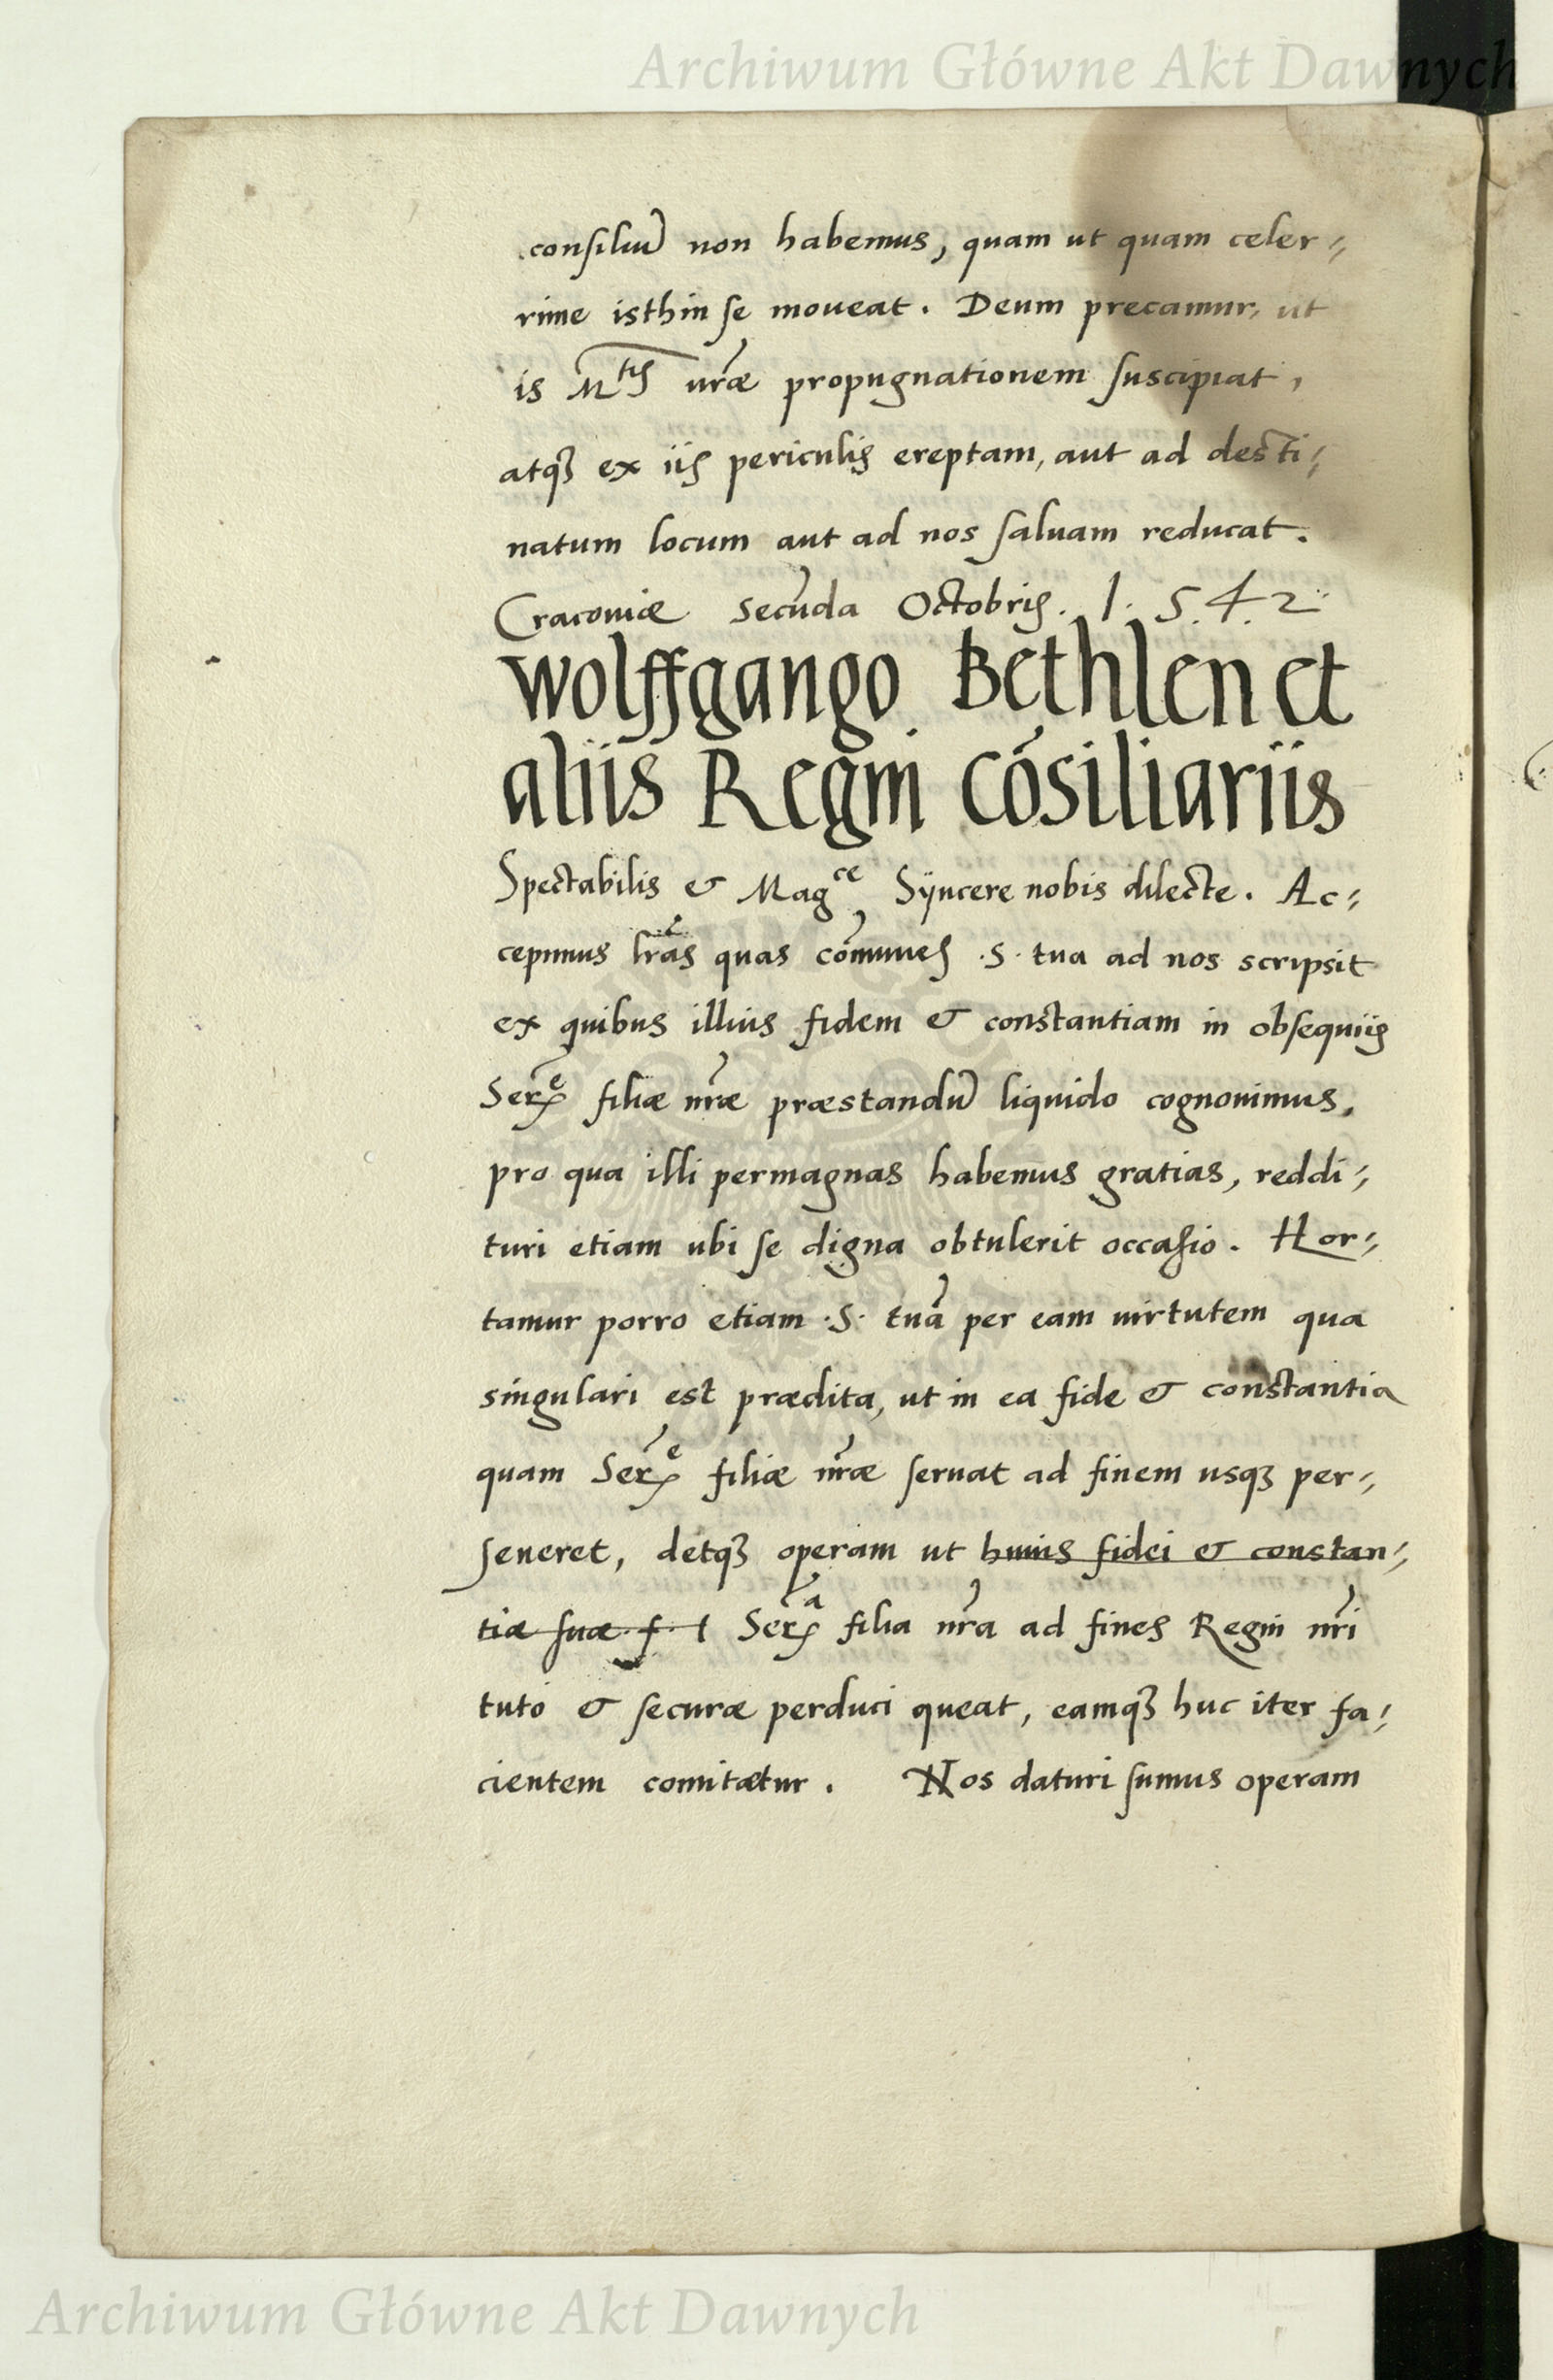 Archiwum Główne Akt Dawnych
consiliũ non habemus, quam ut quam celer-
rime isthinc se moueat. Deum precamur, ut
is M^tis vrãe propugnationem suscipiat,
atqʒ ex iis periculis ereptam, aut ad desti-
natum locum aut ad nos saluam reducat.
Cracouiæ secũda Octobris. 1.5.4.2
Wolffgango Bethlen et
aliis Regni Cõsiliariis
Spectabilis & Mag^ce Syncere nobis dilecte. Ac-
cepimus lrãs quas cõmunes .S. tua ad nos scripsit
ex quibus illius fidem & constantiam in obsequiis
Serẽ filiæ nrãe præstandũ liquido cognouimus,
pro qua illi permagnas habemus gratias, reddi-
turi etiam ubi se digna obtulerit occasio. Hor-
tamur porro etiam .S. tuã per eam uirtutem qua
singulari est prædita, ut in ea fide & constantia
quam Serẽ filiæ nrãe seruat ad finem usqʒ per-
seueret, detqʒ operam ut huius fidei & constan-
tiæ suæ Ser^a filia nrã ad fines Regni nrĩ
tuto & securæ perduci queat, eamqʒ huc iter fa-
cientem comitætur. Nos daturi sumus operam
Archiwum Główne Akt Dawnych